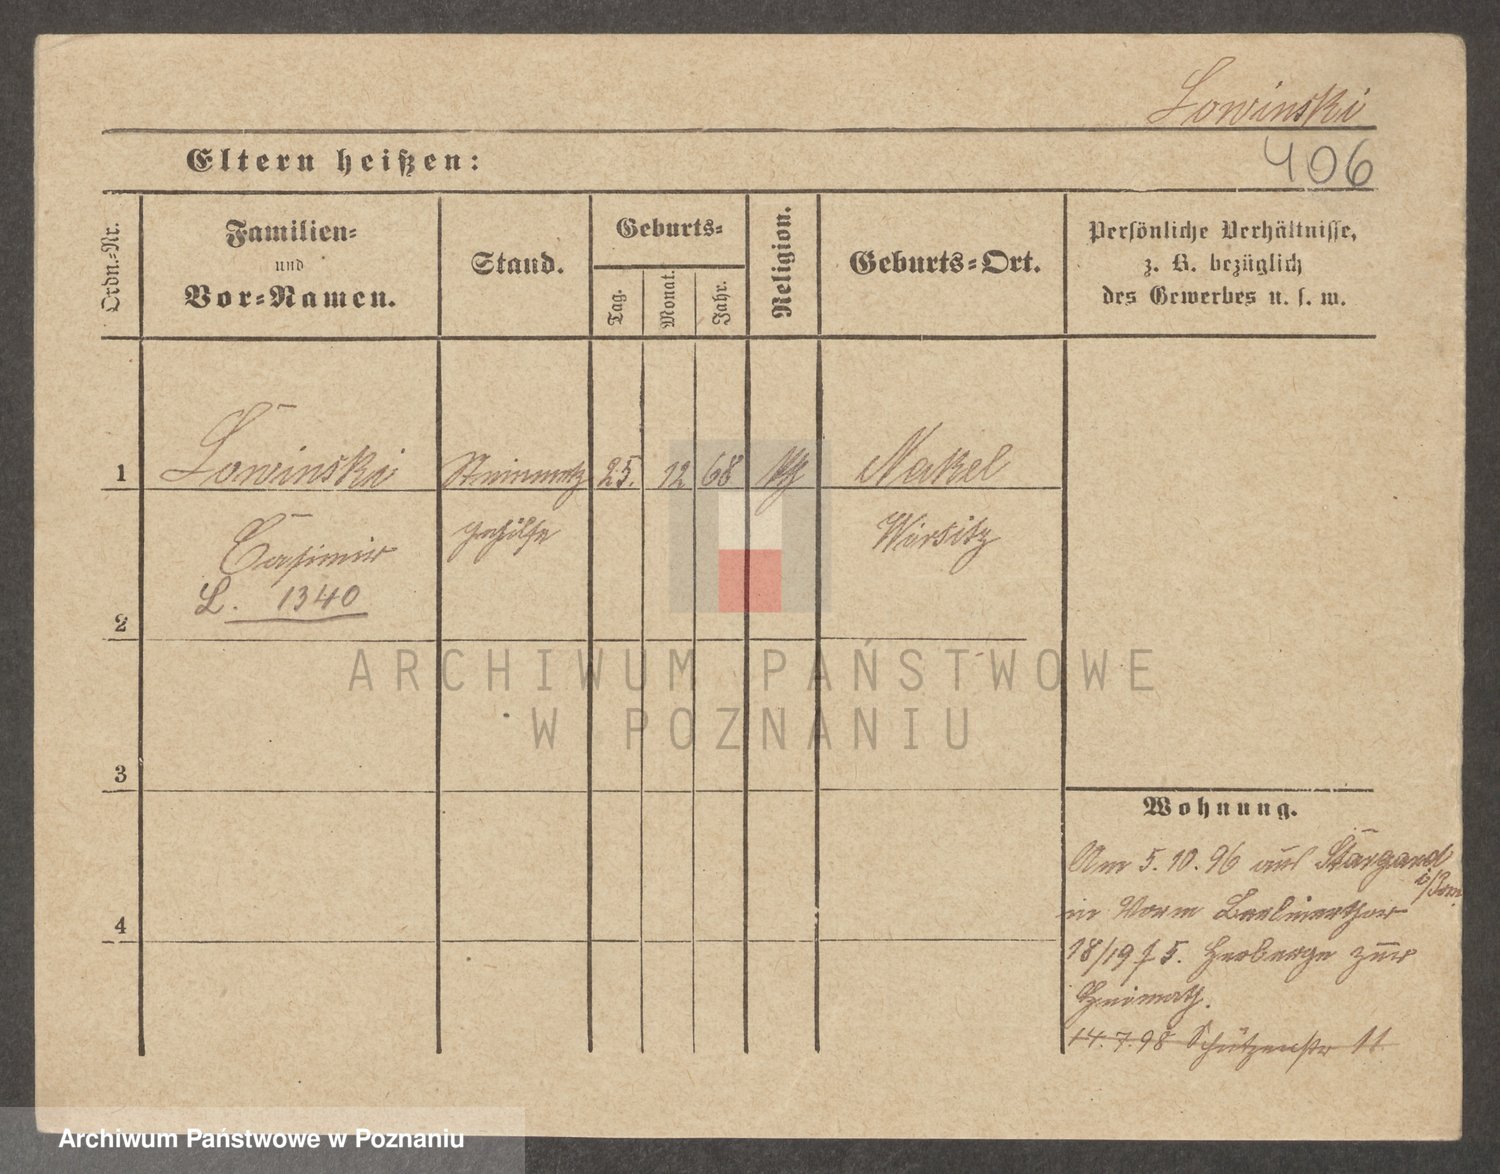 Lowinski
406
Eltern heißen:
Ordn.-Nr.
Familien-
und
Vor-Namen.
Stand.
Geburts-
Tag.
Monat.
Jahr.
Religion.
Geburts-Ort.
Persönliche Verhältnisse,
z. B. bezüglich
des Gewerbes u. s. w.
1
Lowinski
Steinmetz
25.
12
68
Nakel
Casimir
gehilfe
Wirsitz
L. 1340
2
ARCHIWUM PAŃSTWOWE
W POZNANIU
3
Wohnung.
Am 5.10.96 aus Stargard
i/Pom.
in Vorm Berlinerthor
18/19 5. Herberge zur
Heimath.
14.7.98 Schützenstr 11
4
Archiwum Państwowe w Poznaniu